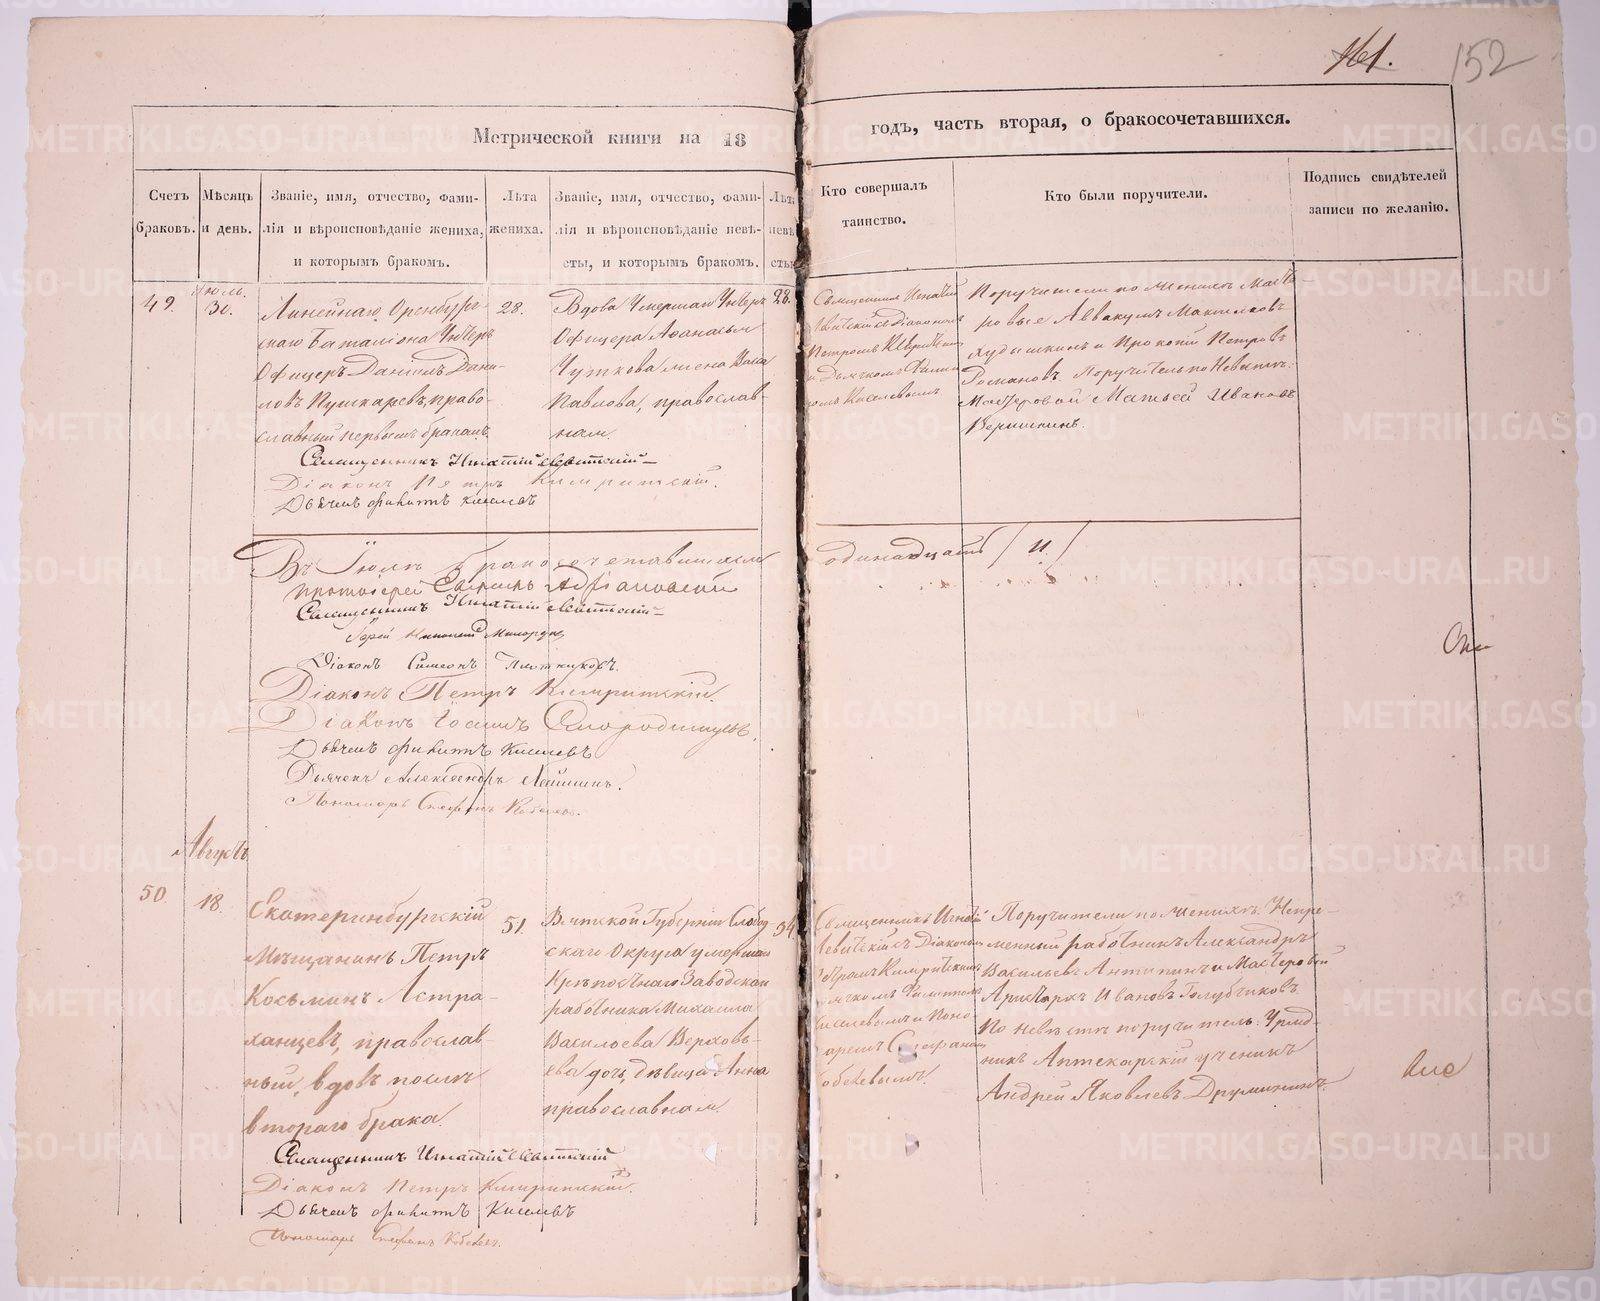 161.
152
Метрической книги на 18
годъ, часть вторая, о бракосочетавшихся.
Счетъ браковъ.
Мѣсяцъ и день.
Званіе, имя, отчество, фами-
лія и вѣроисповѣданіе жениха,
и которымъ бракомъ.
Лѣта
жениха.
Званіе, имя, отчество, фами-
лія и вѣроисповѣданіе невѣ-
сты, и которымъ бракомъ.
Лѣта
невѣ
сты
Кто совершалъ
таинство.
Кто были поручители.
Подпись свидѣтелей
записи по желанію.
49.
Июль.
30.
Линейнаго Оренбург-
скаго Баталіона Унтеръ
Офицеръ Даніилъ Дани-
ловъ Пушкаревъ, право-
славный первымъ бракомъ.
28.
Вдова Умершаго Унтеръ
Офицера Аѳанасья
Чуткова жена
Павлова, православ-
ная.
28.
Священникъ Игнатій
Левитскій съ Діакономъ
Петромъ
и Дьячкомъ
Киселевымъ
Поручители по женихѣ Масте-
ровые Аввакумъ
и Прокопій Петровъ
Романовъ. Поручитель по Невѣстѣ:
Мастеровой Матвей Ивановъ
Вершининъ.
Священникъ Игнатій Левитскій
Діаконъ Петръ Кимритскій.
Дьячекъ Филиппъ Киселевъ
Въ Іюлѣ бракосочетавшихся
одинадцать / 11 /
Протоіерей
Священникъ Игнатій Левитскій
Іерей Николай
Діаконъ Симеонъ Плотниковъ.
Діаконъ Петръ Кимритскій.
Діаконъ Іоаннъ Смородинцевъ.
Дьячекъ Филиппъ Киселевъ
Дьячекъ Александръ
Пономарь Стефанъ
Августъ
50.
18.
Екатеринбургскій
Мѣщанинъ Петръ
Косьминъ Астра-
ханцевъ, православ-
ный, вдовъ послѣ
втораго брака.
51.
Вятской Губерніи Слобод-
скаго Округа умершаго
Крѣпостнаго Заводскаго
работника Михаила
Васильева Верховь-
ева дочь, дѣвица Анна
православная.
34.
Священникъ Игнатій
Левитскій съ Діакономъ
Петромъ Кимритскимъ
Дьячкомъ Филиппомъ
Киселевымъ и Поно-
аремъ Стефаномъ
Поручители по женихѣ: Непре-
менный работникъ Александръ
Васильевъ Антипинъ и Мастеровой
Аристархъ Ивановъ Голубчиковъ.
По невѣстѣ поручитель: Уряд-
никъ Аптекарскій ученикъ
Андрей Яковлевъ Друмининъ.
Священникъ Игнатій Левитскій
Діаконъ Петръ Кимритскій.
Дьячекъ Филиппъ Киселевъ
Пономарь Стефанъ
METRIKI.GASO-URAL.RU